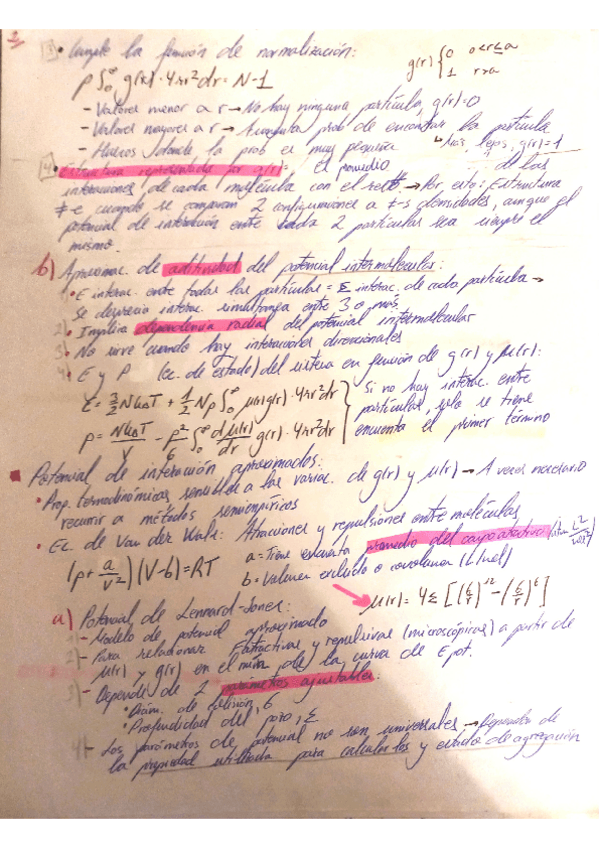 2
3 • Cumple la función de normalización:
ρ∫₀^∞ g(r)·4πr²dr = N-1
g(r) { 0 0<r≤a
1 r>a
- Valores menor a r → No hay ninguna partícula, g(r)=0
- Valores mayores a r → Aumenta prob de encontrar la partícula
- Huecos donde la prob es muy pequeña
lejos, g(r)=1
4 • Estructura representada por g(r)= el promedio de las
interacciones de cada molécula con el resto → Por esto: Estructura
≠e cuando se comparan 2 configuraciones a ≠s densidades, aunque el
potencial de interacción entre cada 2 partículas sea siempre el
mismo.
b) Aproximac. de aditividad del potencial intermolecular:
1 • E interac. entre todas las partículas = Σ interac. de cada partícula →
Se desprecia interac. simultánea entre 3 o más
2 • Implica dependencia radial del potencial intermolecular
3 • No sirve cuando hay interacciones direccionales
4 • E y P (ec. de estado) del sistema en función de g(r) y μ(r):
E = 3/2 NkBT + 1/2 Nρ∫₀^∞ μ(r)g(r)·4πr²dr
p = NkBT/V - ρ²/6 ∫₀^∞ dμ(r)/dr g(r)·4πr²dr
Si no hay interac. entre
partículas, solo se tiene
encuenta el primer término
Potencial de interacción aproximados:
• Prop. termodinámicas sensible a las variac. de g(r) y μ(r) → A veces necesario
recurrir a métodos semiempíricos
• Ec. de Van der Wals: Atracciones y repulsiones entre moléculas
(p + a/V²)(V-b) = RT
a = Tiene encuenta promedio del campo atractivo
b = Volumen excluido o covolumen (L/mol)
μ(r) = 4ε [(σ/r)¹² - (σ/r)⁶]
a) Potencial de Lennard-Jones:
1 - Modelo de potencial aproximado
2 - Para relacionar E atractivas y repulsivas (microscópicas) a partir de
μ(r) y g(r) en el mín de la curva de Epot.
3 - Depende de 2 parámetros ajustables.
• Diám. de colisión, σ
• Profundidad del pozo, ε
4 - Los parámetros de potencial no son universales → Dependen de
la propiedad utilizada para calcularlos y estado de agregación